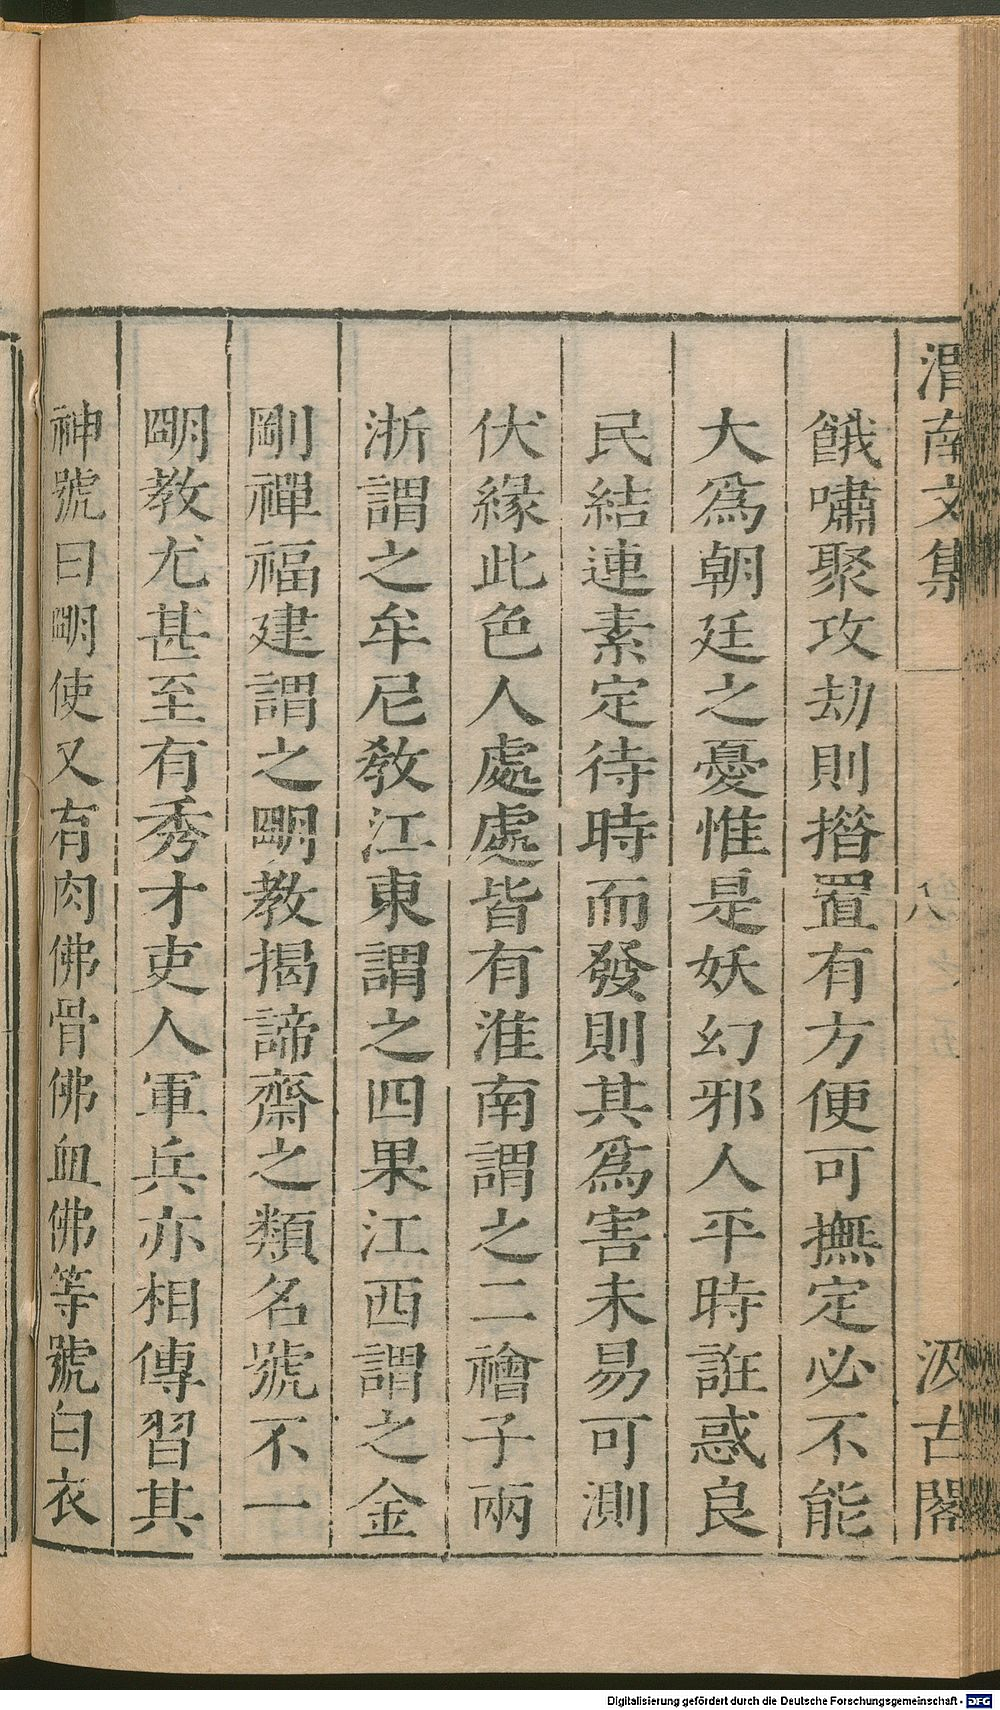 渭南文集
八
汲古閣
餓嘯聚攻劫則措置有方便可撫定必不能
大爲朝廷之憂惟是妖幻邪人平時誑惑良
民結連素定待時而發則其爲害未易可測
伏緣此色人處處皆有淮南謂之二襘子兩
浙謂之牟尼教江東謂之四果江西謂之金
剛禪福建謂之朙教揭諦齋之類名號不一
朙教尤甚至有秀才吏人軍兵亦相傳習其
神號曰朙使又有肉佛骨佛血佛等號白衣
Digitalisierung gefördert durch die Deutsche Forschungsgemeinschaft - DFG